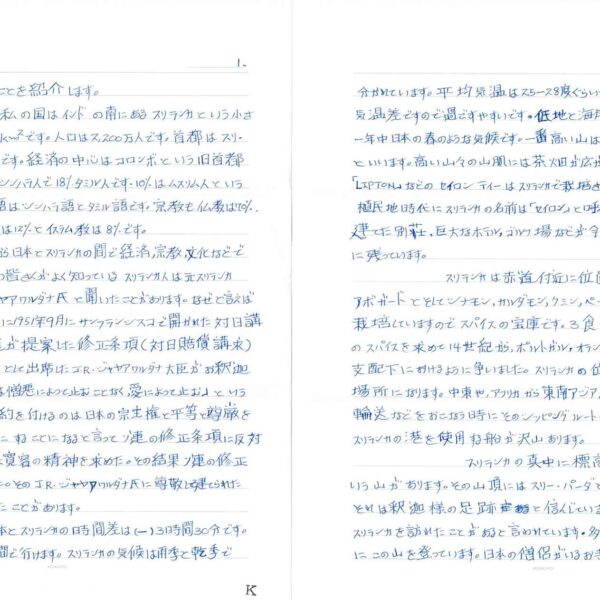 1.
ことを紹介します。
私の国はインドの南にあるスリランカという小さ
km²です。人口は2,200万人です。首都はスリ-
です。経済の中心はコロンボという旧首都
シンハラ人で18%タミル人です。10%はムスリム人という
語はシンハラ語とタミル語です。宗教も仏教は70%、
は12%とイスラム教は8%です。
ら日本とスリランカの間で経済,宗教,文化などで
の皆さんがよく知っているスリランカ人は元スリランカ
ャヤワルダナ氏と聞いたことがあります。なぜと言えば
に1951年9月にサンフランシスコで開かれた対日講
が提案した修正条項(対日賠償請求)
として出席したJ.R.ジャヤワルダナ大臣がお釈迦
は憎悪によって止むことなく,愛によって止む」という
約を付けるのは日本の宗主権と平等と尊厳を
ねることになると言ってソ連の修正条項に反対
は寛容の精神を求めた。その結果ソ連の修正
た。そのJ.R.ジャヤワルダナ氏に尊敬し建てられた
たことがあります。
本とスリランカの時間差は(-)3時間30分です。
間で行けます。スリランカの気候は雨季と乾季で
K
分かれています。平均気温は25ら28度ぐらい
気温差ですので過ごすやすいです。低地と海岸
一年中日本の春のような気候です。一番高い山は
といいます。高い山々の山肌には茶畑が広が
「LIPTON」などのセイロンティーはスリランカで栽培さ
植民地時代にスリランカの名前は「セイロン」と呼
建てた別荘,巨大なホテル,ゴルフ場などが今
に残っています。
スリランカは赤道付近に位置
アボガードとそしてシナモン,カルダモン,クミン,ペ
栽培していますのでスパイスの宝庫です。3食
のスパイスを求めて14世紀から,ポルトガル,オラン
支配下におけるように争いました。スリランカの位
場所になります。中東や,アフリカから東南アジア,
輸送などをおこなう時にそのシッピングルート
スリランカの港を使用する船が沢山あります。
スリランカの真中に標高
いう山があります。その山頂にはスリー・パーダと
それは釈迦様の足跡であると信んじてい
スリランカを訪れたことがあると言われています。多
にこの山を登っています。日本の僧侶がいるお寺